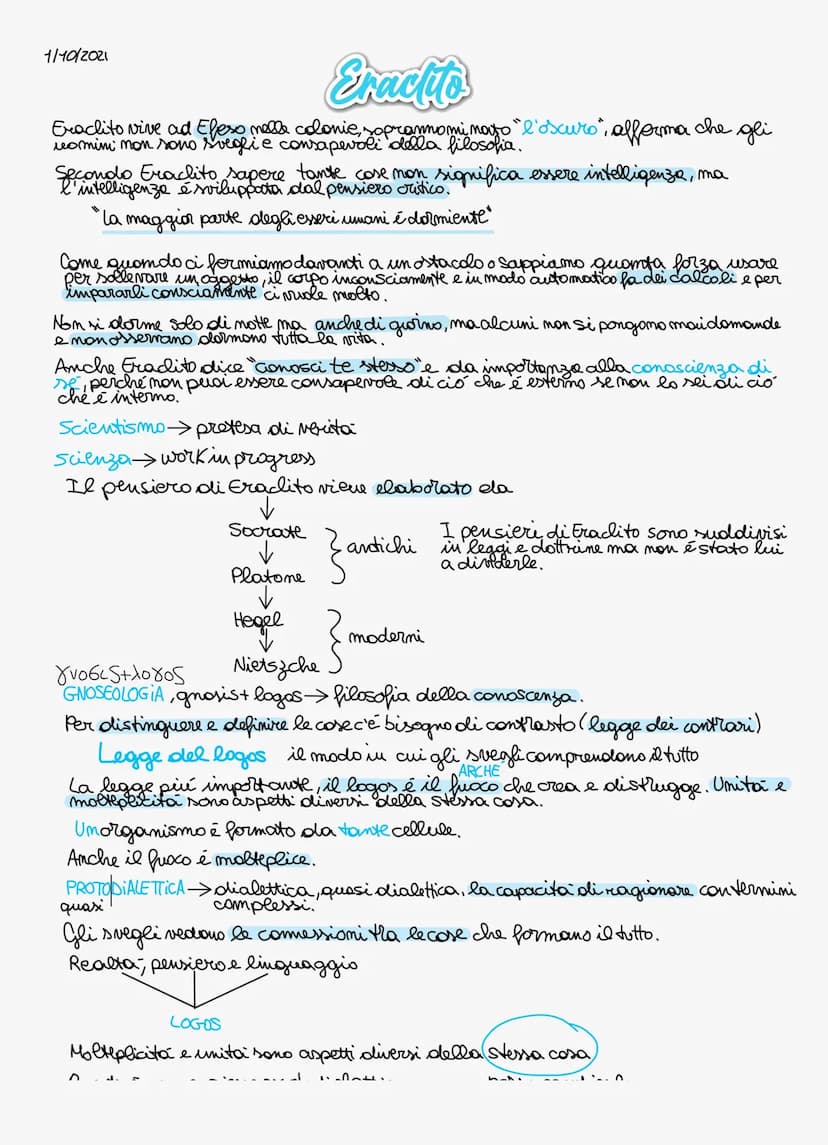 1/10/2021
Eraclito
Eraclito vive ad Efeso nelle colonie, soprannominato "l'oscuro", afferma che gli
uomini non sono svegli e consapevoli della filosofia.
Secondo Eraclito sapere tante cose non significa essere intelligenza, ma
l'intelligenza é sviluppata dal pensiero critico.
"La maggior parte degli esseri umani é dormiente"
Come quando ci fermiamo davanti a un ostacolo o sappiamo quanta forza usare
per sollevare un oggetto, il corpo inconsciamente e in modo automatico fa dei calcoli e per
impararli consciamente ci vuole molto.
Non si dorme solo di notte ma anche di giorno, ma alcuni non si pongono mai domande
e non osservano, dormono tutta la vita.
Anche Eraclito dice "conosci te stesso" e da importanza alla conoscienza di
sé, perché non puoi essere consapevole di ció che é esterno se non lo sei di ció
che é interno.
Scientismo → pretesa di veritá
Scienza → work in progress
Il pensiero di Eraclito viene elaborato da
Socrate
antichi
I pensieri di Eraclito sono suddivisi
in leggi e dottrine ma non é stato lui
a dividerle.
Platone
Hegel
moderni
Nietszche
GNOSEOLOGIA, gnosis + logos → filosofia della conoscenza.
Per distinguere e definire le cose c'é bisogno di contrasto (legge dei contrari)
Legge del logos il modo in cui gli svegli comprendono il tutto
ARCHÉ
La legge piú importante, il logos é il fuoco che crea e distrugge. Unitá e
molteplicitá sono aspetti diversi della stessa cosa.
Un organismo é formato da tante cellule.
Anche il fuoco é molteplice.
PROTO|DIALETTICA → dialettica, quasi dialettica, la capacitá di ragionare con termini
quasi complessi.
Gli svegli vedono le connessioni tra le cose che formano il tutto.
Realtá, pensiero e linguaggio
LOGOS
Molteplicitá e unitá sono aspetti diversi della stessa cosa